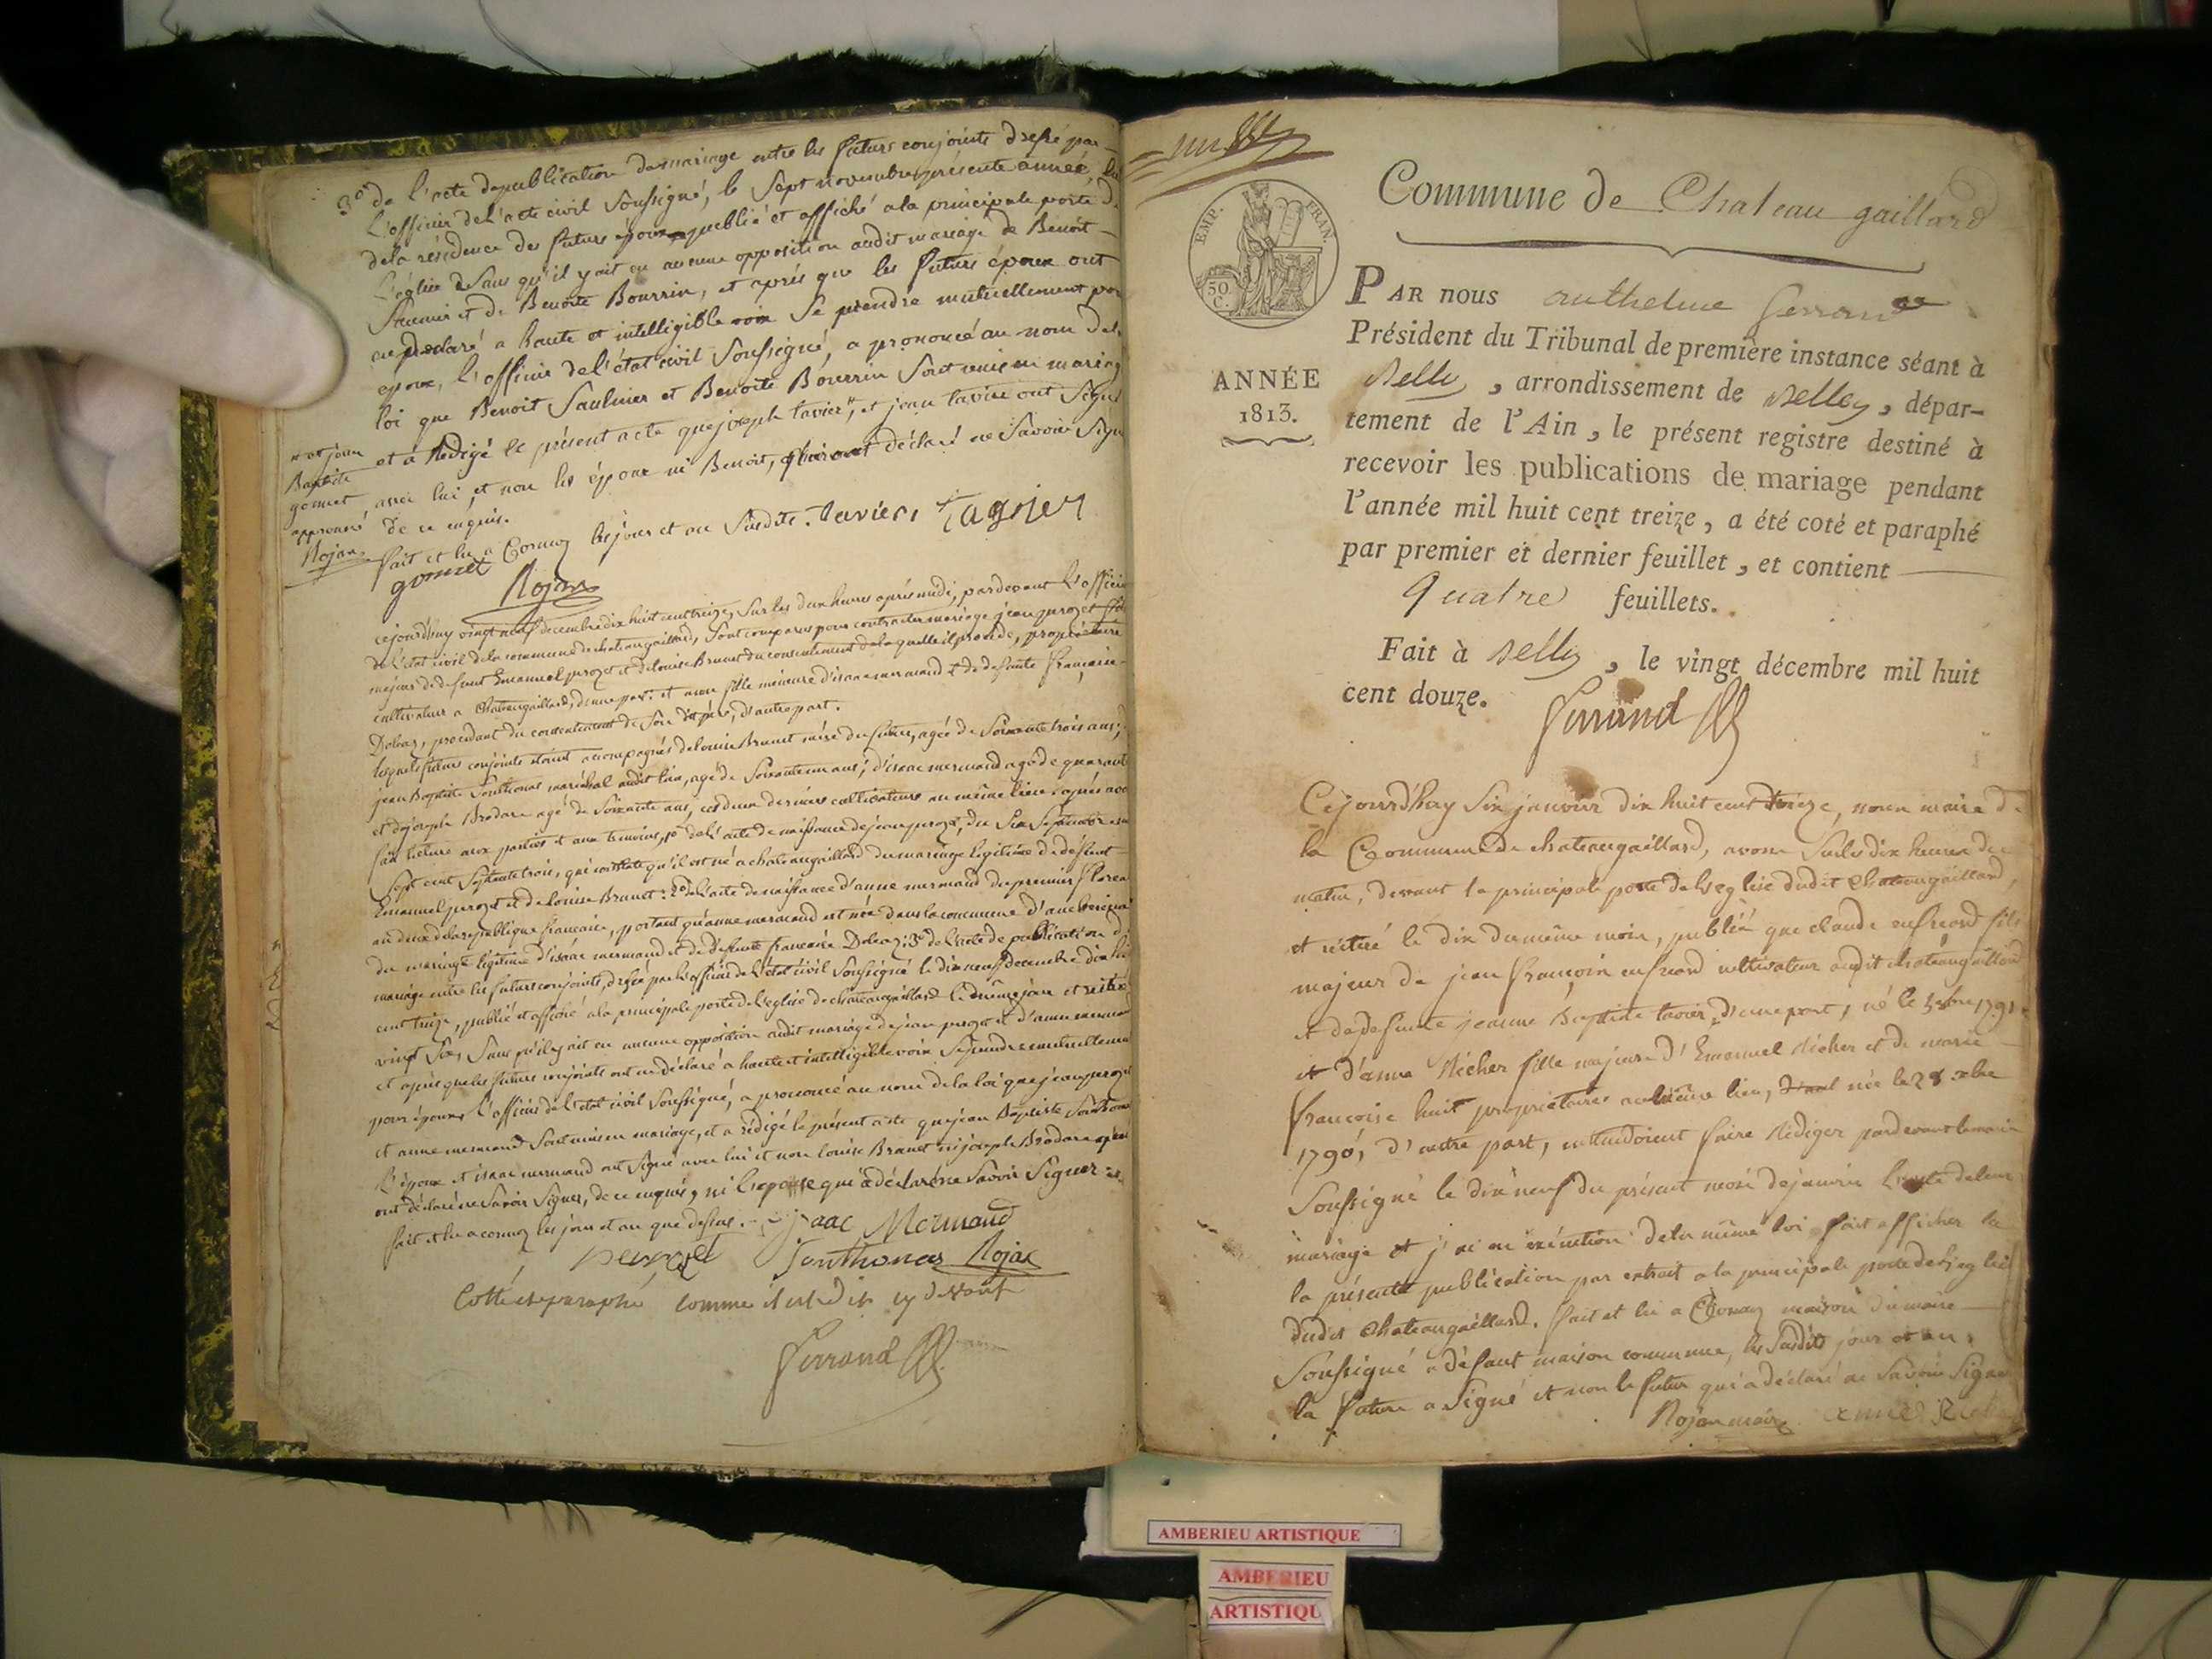 3º de l'acte de publication de mariage entre les futurs conjoints dressé par
L'officier de l'acte civil soussigné, le sept novembre présente année, lu
de la résidence des futurs époux publié et affiché a la principale porte de
L'église sans qu'il y ait eu aucune opposition audit mariage de Benoit
Saunier et de Benoite Bourrin, et après que les futurs époux ont
eu declaré a haute et intelligible voix se prendre mutuellement pour
epoux, l'officier de l'état civil soussigné, a prononcé au nom de la
loi que Benoit Saulnier et Benoite Bourrin sont unis en mariage
et a rédigé le présent acte que joseph tavier, et jean tavier ont signé
avec lui, et non les époux ni Benoit, qui ont déclaré ne savoir signer
de ce enquis.
et jean
Baptiste
gonnet
approuvé
Rojan
fait et lu a Cormoz les jour et an susdits. tavier, tavier
gonnet Rojan
cejourd'huy vingt neuf decembre dix huit cent treize, sur les deux heures après midi, pardevant L'officier
de L'état civil de la commune de chateaugaillard, sont comparus pour contracter mariage jean perozet fils
majeur de defunt Emanuel perozet et de louise Brunet du consentement de laquelle il procede, propriétaire
cultivateur a chateaugaillard, d'une part: et anne fille mineure d'isaac mermand et de defunte françoise
Dobaz, procedant du consentement de son dit père, d'autre part.
lesquels futurs conjoints étoient accompagnés de louise Brunet mère du futur, agée de soixante trois ans;
jean Baptiste Sonthonas maréchal audit lieu, agé de soixante un ans; d'isaac mermand agé de quarante
et de joseph Brodare agé de soixante ans, ces deux derniers cultivateurs au même lieu. après avoir
fait lecture aux parties et aux temoins, 1º de l'acte de naissance de jean perozet, du six septembre mil
sept cent septante trois, qui constate qu'il est né a chateaugaillard du mariage légitime de defunt
Emanuel perozet et de louise Brunet: 2º de l'acte de naissance d'anne mermand du premier floreal
an deux de la république française, portant qu'anne mermand est née dans la commune d'
du mariage légitime d'isaac mermand et de defunte françoise Dobaz; 3º de l'acte de publication de
mariage entre les futurs conjoints, dressé par L'officier de L'état civil soussigné le dix neuf decembre dix huit
cent treize, publié et affiché a la principale porte de L'église de chateaugaillard le même jour et réitéré
vingt six, sans qu'il y ait eu aucune opposition audit mariage de jean perozet et d'anne mermand
et après que les futurs conjoints ont eu déclaré a haute et intelligible voix se prendre mutuellement
pour époux, L'officier de L'état civil soussigné, a prononcé au nom de la loi que jean perozet
et anne mermand sont unis en mariage, et a rédigé le présent acte que jean Baptiste Sonthonas
L'époux et isaac mermand ont signé avec lui et non louise Brunet ni joseph Brodare qui
ont déclaré ne savoir signer, de ce enquis, ni L'epouse qui a déclaré ne savoir signer
fait et lu a cormoz les jour et an que dessus. isaac Mermand
perozet Sonthonas Rojan
Cotté et paraphé comme il est dit cy devant
Ferrand
EMP. FRAN.
50
C.
ANNÉE
1813.
Commune de Chateau gaillard
PAR nous anthelme ferrand
Président du Tribunal de première instance séant à
Belley, arrondissement de Belley, dépar-
tement de l'Ain, le présent registre destiné à
recevoir les publications de mariage pendant
l'année mil huit cent treize, a été coté et paraphé
par premier et dernier feuillet, et contient
quatre feuillets.
Fait à Belley, le vingt décembre mil huit
cent douze. Ferrand
Cejourd'huy six janvier dix huit cent treize, nous maire de
la Commune de chateaugaillard, avons sur les dix heures du
matin, devant la principale porte de L'eglise dudit chateaugaillard,
et réitéré le dix du même mois, publié que claude enfreand fils
majeur de jean françois enfreand cultivateur audit chateaugaillard
et de defunte jeanne Baptiste tavier, d'une part, né le 5 xbre 1791
et d'anne Récher fille majeure d'Emanuel Récher et de marie
françoise huit propriétaires au même lieu, née le 28 xbre
1790, d'autre part, entendoient faire rédiger pardevant le maire
soussigné le dix neuf du présent mois de janvier L'acte de leur
mariage et j'ai en exécution de la même loi fait afficher la
la présente publication par extrait a la principale porte de L'eglise
dudit chateaugaillard. fait et lu a Cormoz maison du maire
soussigné a défaut maison commune, les susdits jour et an.
la future a signé et non le futur qui a déclaré ne savoir signer
Rojan maire anne Récher
AMBERIEU ARTISTIQUE
AMBERIEU
ARTISTIQU